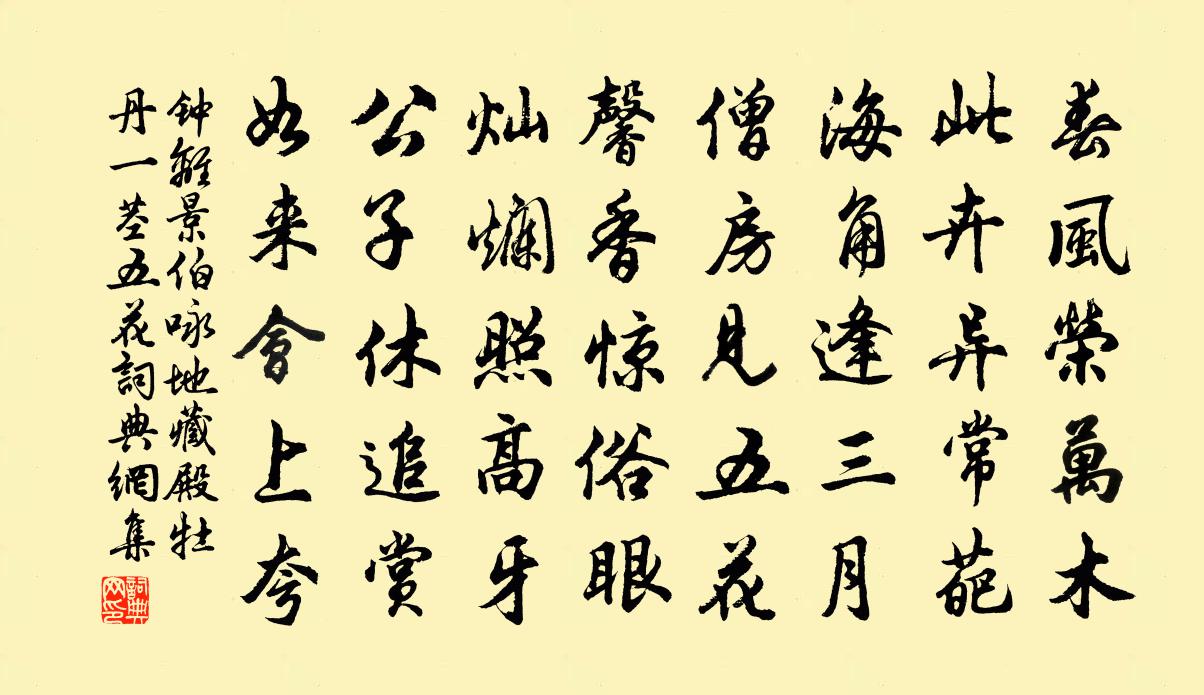 春風榮萬木
此卉异常葩
海角逢三月
僧房見五花
馨香惊俗眼
灿爛照高牙
公子休追赏
如来會上夸
钟離景伯咏地藏殿牡
丹一茎五花詞典網集
詞典网印